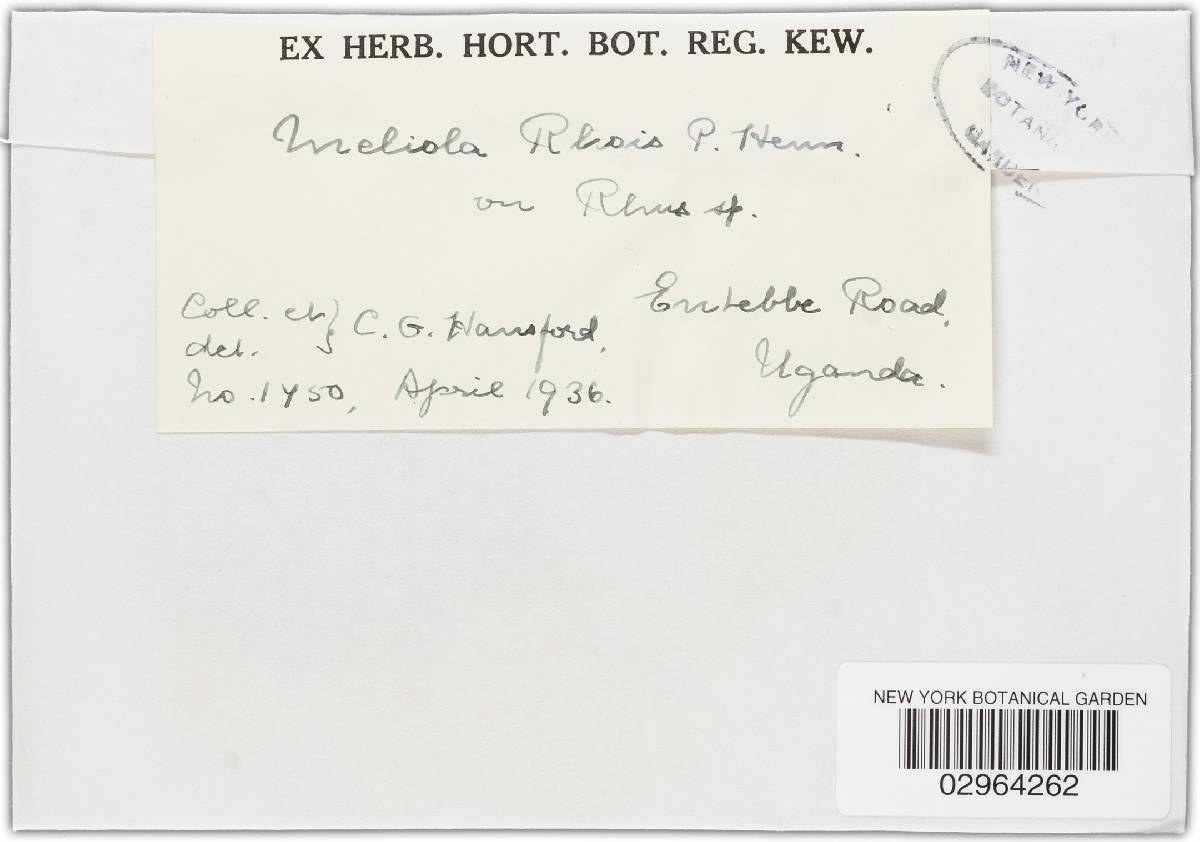 EX HERB. HORT. BOT. REG. KEW.
NEW YORK
BOTANI
GARDEN
Meliola Rhois P. Henn.
on Rhus sp.
Coll. et } C. G. Hansford,
det.
Entebbe Road,
Uganda.
No. 1750, April 1936.
NEW YORK BOTANICAL GARDEN
02964262